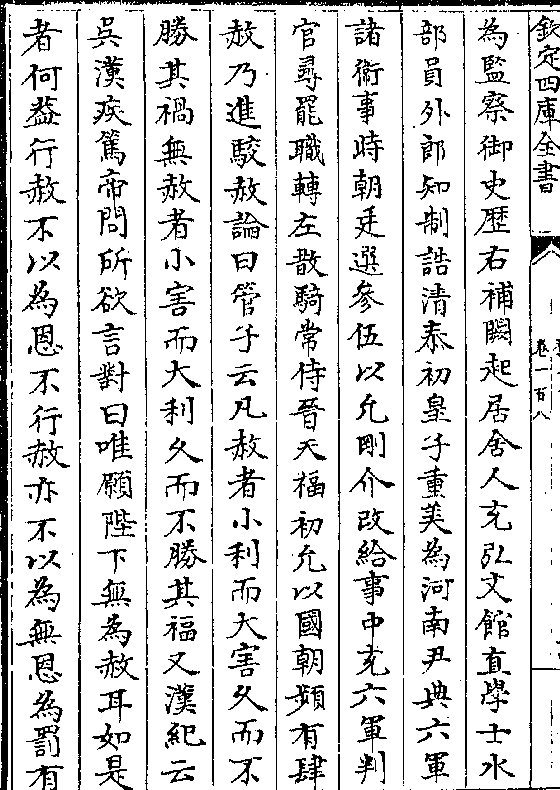 欽定四庫全書
卷一百八
為監察御史歷右補闕起居舍人充弘文館直學士水
部員外郎知制誥清泰初皇子重美為河南尹典六軍
諸衛事時朝廷選參伍以允剛介改給事中充六軍判
官尋罷職轉左散騎常侍晉天福初允以國朝頻有肆
赦乃進駮赦論曰管子云凡赦者小利而大害久而不
勝其禍無赦者小害而大利久而不勝其福又漢紀云
吳漢疾篤帝問所欲言對曰唯願陛下無為赦耳如是
者何葢行赦不以為恩不行赦亦不以為無恩為罰有